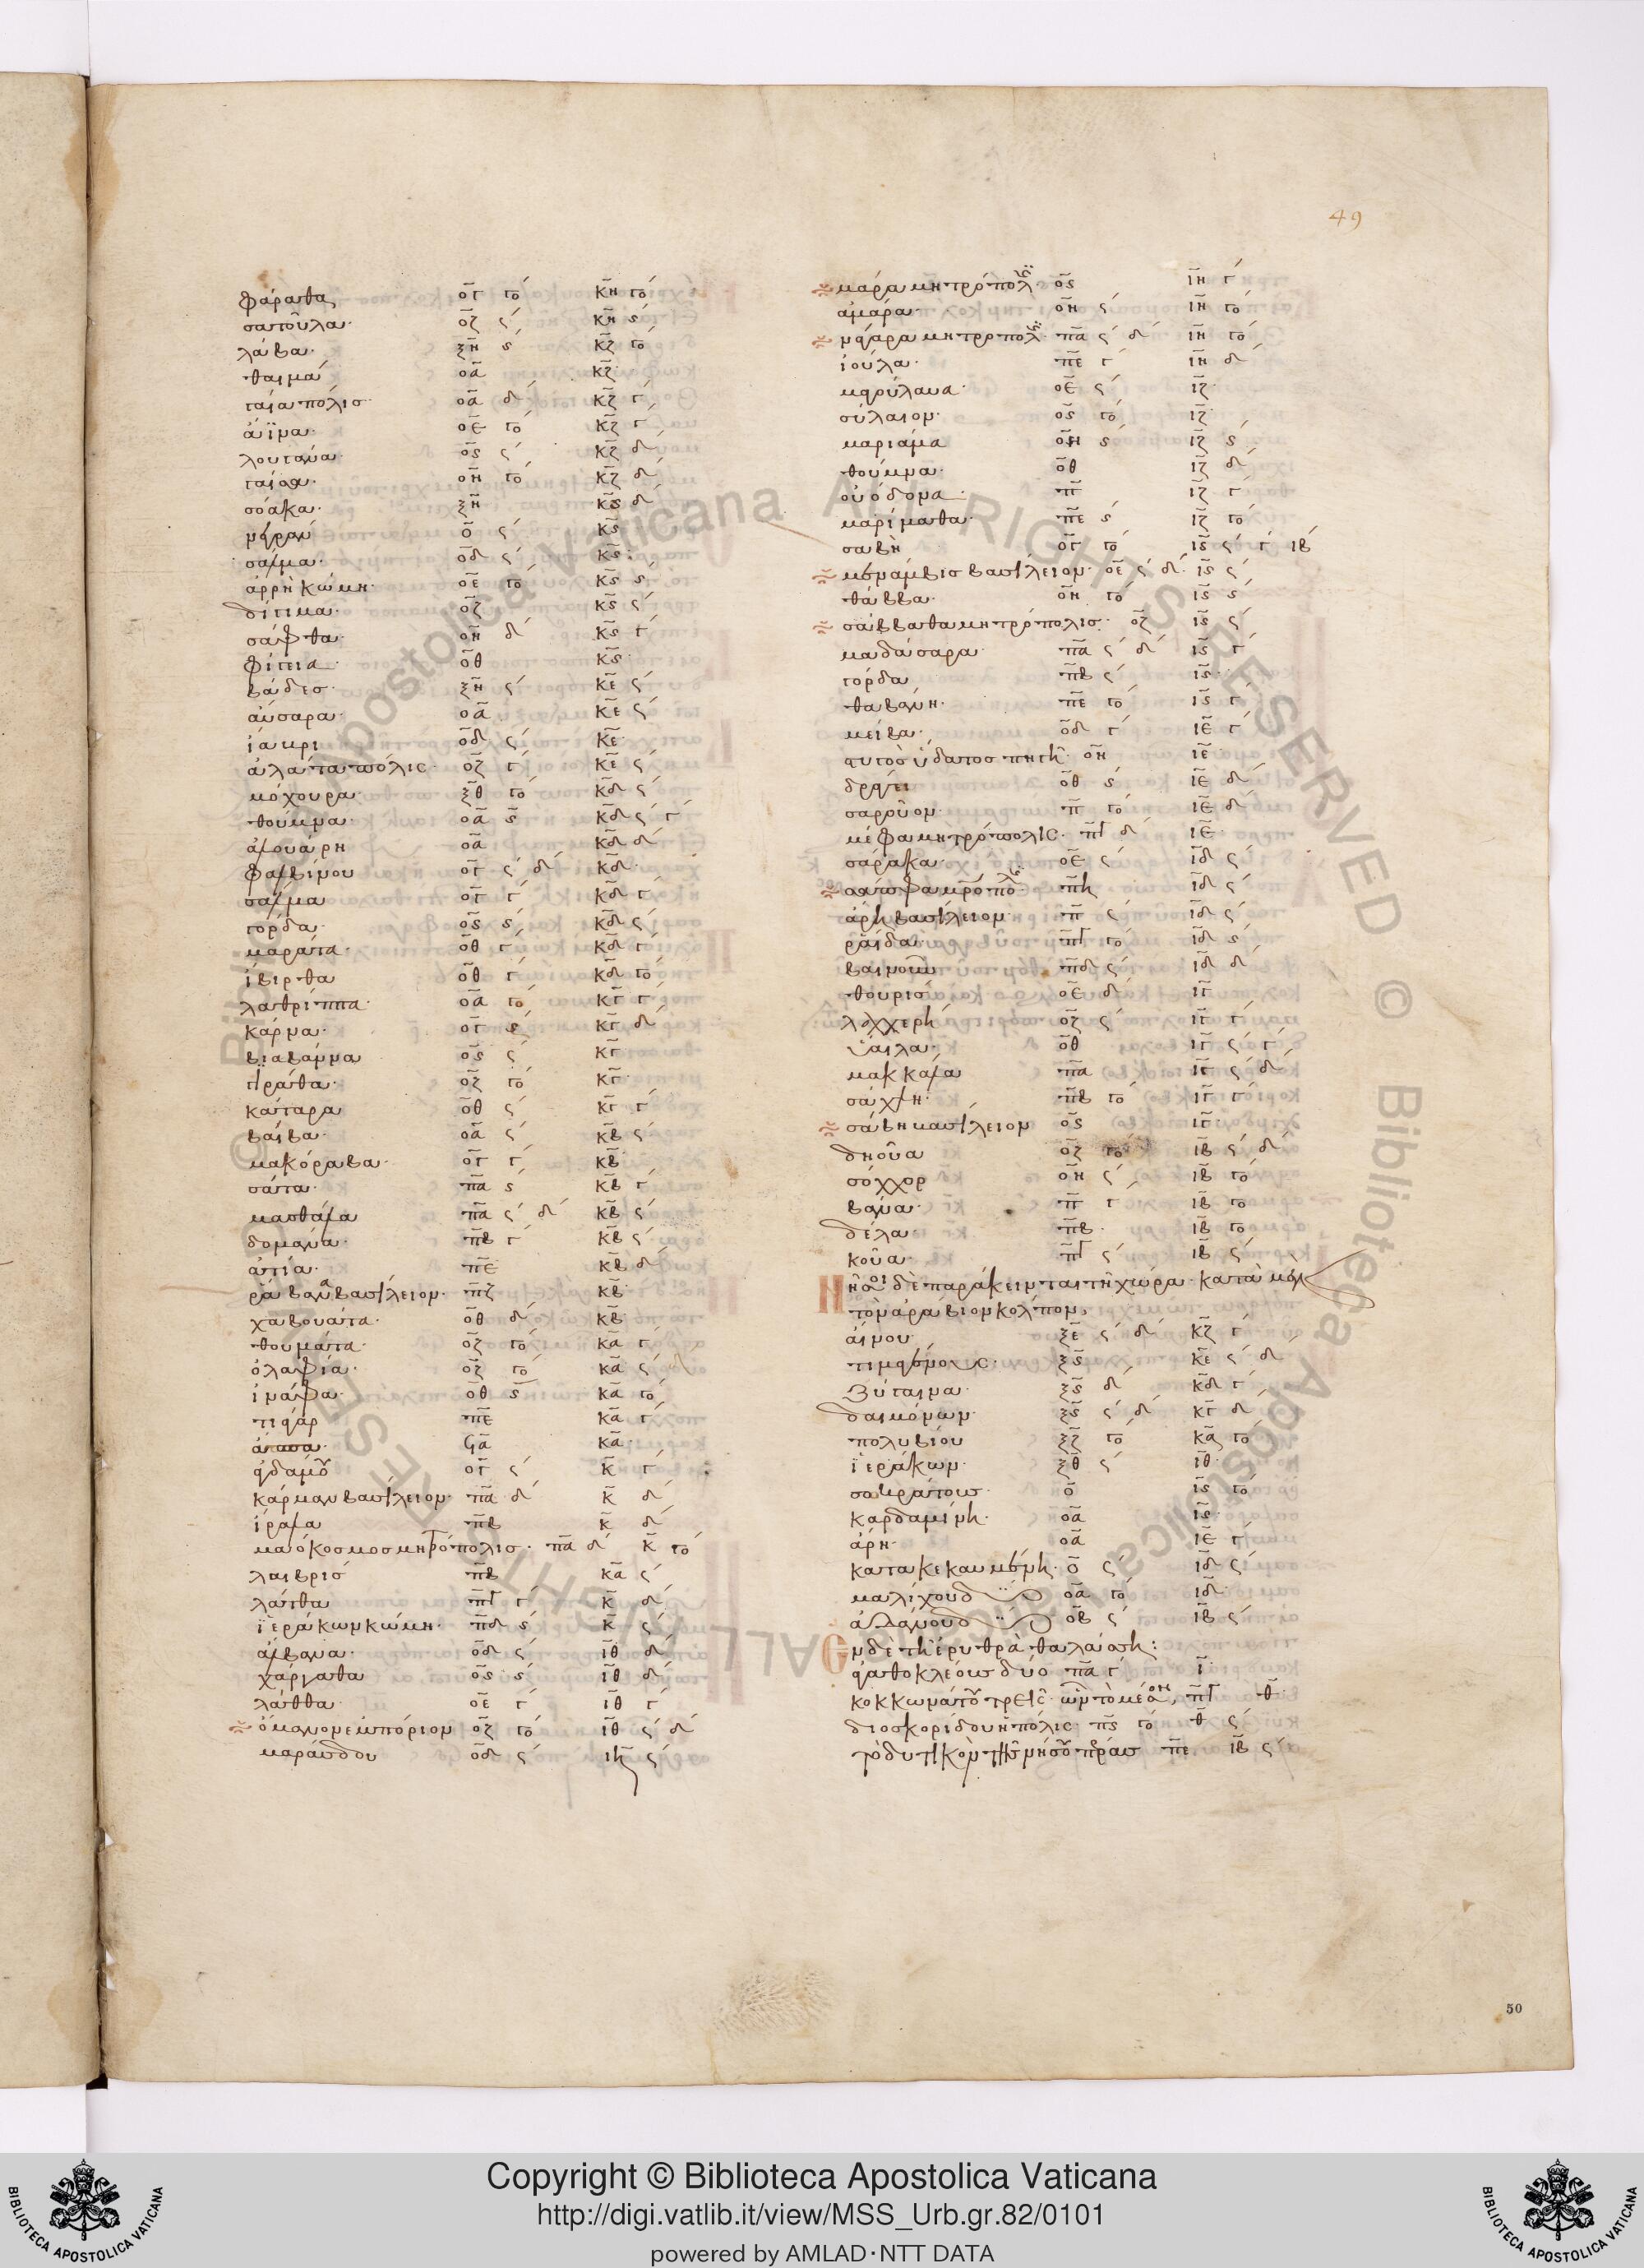 49
φάραθα ογ γο κη γο
σατούλα οζ ς κη ς
λάβα ξη ς κζ γο
θαιμά οα κζ
γαία πόλισ οα δ κζ γ
ἀΐνα οε γο κζ γ
λουγάνα ος ς κζ δ
γαίσα οη γο κζ δ
σόακα ξη κς δ
ο ς κς
σάλμα οδ ς κς
ἀρρὴ κώμη οε γο κς ς
δίγιμα οζ κς ς
σάφθα οη δ κς γ
φίγεια οθ κς
βάδεσ ξη ς κε ς
αὔσαρα οα κε ς
ἰάκρι οδ ς κε
ἀλάτα πόλις οζ γ κε ς
μόχουρα ξθ γο κδ ς
θούμνα οα ς κδ ς γ
ἀλουάρη οα κδ δ
φαλβίνου ογ ς δ κδ
σάλμα ογ γ κδ γ
γόρδα ος ς κδ ς
μαράτα οθ γ κδ γ
ἴβιρθα οθ γ κδ γο
λαθρίππα οα γο κγ γ
κάρνα ογ ς κγ δ
βιαβάννα ος ς κγ
γοέραθα οζ γο κγ
κάταρα οθ ς κγ γ
βαίβα οα ς κβ ς
μακόραβα ογ γ κβ
σάτα πα ς κβ γ
μασθάλα πα ς δ κβ ς
δομάνα πβ γ κβ ς
ἀτία πε κβ δ
ῥάβανα βασίλειον πζ κβ
χαβουάτα οθ δ κβ
θουμάτα οζ γο κα γ
ὀλαφία οζ γο κα ς δ
ἰνάφα οθ ς κα γο
τιάγαρ πε κα γ
ἄπασα ϟα κα
ἀγδαμοῦ ογ ς κ γ
κάρμαν βασίλειον πα δ κ δ
ἰράλα πβ κ δ
μαόκοσμοσ μητρόπολισ πα δ κ γο
λαβρίσ πβ κα ς
λάτθα πγ γ κ δ
ἱεράκων κώμη πδ ς κ ς
ἄλβανα οδ ς ιθ δ
χάργαθα ος ς ιθ δ
λάθθα οε γ ιθ γ
ὄμανον ἐμπόριον οζ γο ιθ ς δ
μαράσδου οδ ς ιη ς
μάρα μητρόπολις ος ιη γ
ἀμάρα οη ς ιη γο
νάγαρα μητρόπολις πα ς δ ιη γο
ἰούλα πε γ ιη δ
μαγούλανα οε ς ιζ
σύλαιον ος γο ιζ
μαρίαμα οη ς ιζ ς
θούμνα οθ ιζ δ
οὐόδονα π ιζ γ
μαρίμαθα πε ς ιζ γο
σαβὴ ογ γο ις ς γ ιβ
μενάμβισ βασίλειον οε ς δ ις ς
θάββα οη γο ις ς
σάββαθα μητρόπολισ οζ ις ς
μαδάσαρα πα ς δ ις γ
γόρδα πβ ς ις
θαβάνη πε γο ις γ
μείβα οδ γ ιε γ
στυγὸσ ὕδατος πηγή οη ιε
δράγει οθ ς ιε δ
σαροῦον π γο ιε δ
μέφα μητρόπολις πγ δ ιε
σάρακα οε ς ιδ ς
σάπφα μητρόπολις πη ιδ ς
ἀρὴ βασίλειον π ς ιδ ς
ῥάιδα πγ γο ιδ ς
βαινοὺν πδ ς ιδ δ
θουρισ οε δ ιγ
λαχχερὴ οζ ς ιγ γ
ὕαιλα οθ ιγ ς γ
μακκάλα πα ιγ ς δ
σάχλη πβ γο ιγ γ
σάβη βασίλειον ος ιγ
δηοῦα οζ γο ιβ ς δ
σόχχορ οη ς ιβ γο
βάνα π γ ιβ γο
δέλα πβ ιβ γο
κοῦα πγ ς ιβ ς
Νῆσοι δὲ παράκεινται τῆ χώρα κατὰ μὲν
τὸν ἀράβιον κόλπον
αἴνου ξε ς δ κζ γ
τιμαγένους ξς κε ς δ
ζύγαινα ξς δ κδ γ
δαιμόνων ξς ς δ κγ δ
πολυβίου ξζ γο κα γο
ἱεράκων ξθ ς ιθ
σωκράτουσ ο ις γο
καρδαμίνη οα ις
ἀρη οα ιε γ
κατακεκαυμένη ο ς ιδ ς
μαλίχου δύο οα γο ιδ
ἀδάνου δύο οβ ς ιβ ς
Ἐν δὲ τῆ ἐρυθρὰ θαλάσση:
ἀγαθοκλέουσ δύο πα γ ι
κοκκωνάτου τρεῖς ὧν τὸ μέσον πγ θ
διοσκορίδου ἡ πόλις πς γο θ ς
τὸ δυτικὸν τῆς νήσου πέρασ πε ιβ ς
50
BIBLIOTECA APOSTOLICA VATICANA
Copyright © Biblioteca Apostolica Vaticana
http://digi.vatlib.it/view/MSS_Urb.gr.82/0101
powered by AMLAD·NTT DATA
BIBLIOTECA APOSTOLICA VATICANA